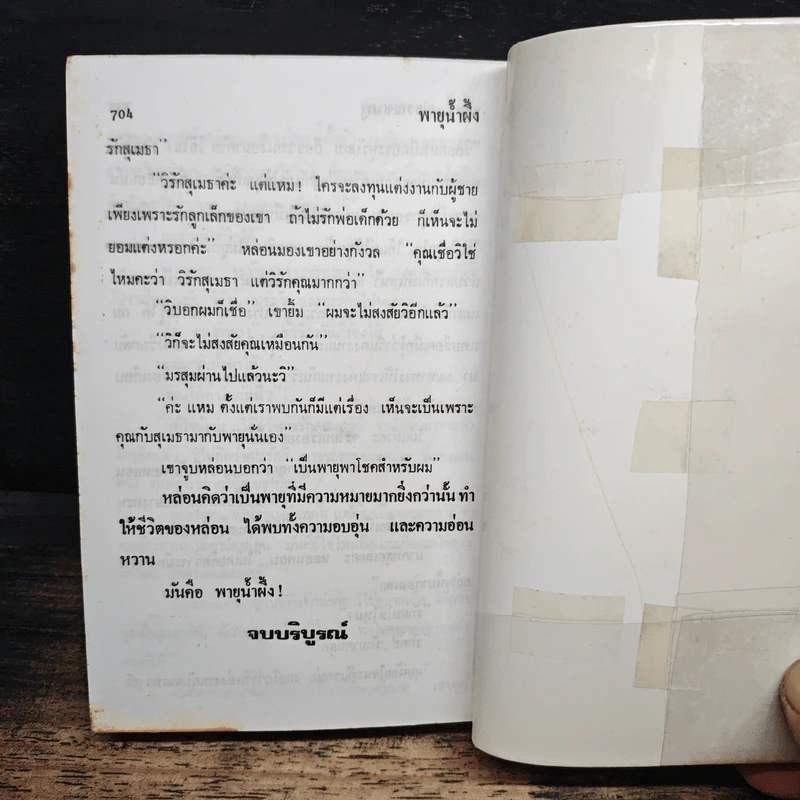 704
พายุน้ำผึ้ง
รักสุเมธา”
“วิรักสุเมธาค่ะ แต่แหม! ใครจะลงทุนแต่งงานกับผู้ชาย
เพียงเพราะรักลูกเล็กของเขา ถ้าไม่รักพ่อเด็กด้วย ก็เห็นจะไม่
ยอมแต่งหรอกค่ะ” หล่อนมองเขาอย่างกังวล “คุณเชื่อวิใช่
ไหมคะว่า วิรักสุเมธา แต่วิรักคุณมากกว่า”
“วิบอกผมก็เชื่อ” เขายิ้ม “ผมจะไม่สงสัยวิอีกแล้ว”
“วิก็จะไม่สงสัยคุณเหมือนกัน”
“มรสุมผ่านไปแล้วนะวิ”
“ค่ะ แหม ตั้งแต่เราพบกันก็มีแต่เรื่อง เห็นจะเป็นเพราะ
คุณกับสุเมธามากับพายุนั่นเอง”
เขาจูบหล่อนบอกว่า “เป็นพายุพาโชคสำหรับผม”
หล่อนคิดว่าเป็นพายุที่มีความหมายมากยิ่งกว่านั้น ทำ
ให้ชีวิตของหล่อน ได้พบทั้งความอบอุ่น และความอ่อน
หวาน
มันคือ พายุน้ำผึ้ง!
จบบริบูรณ์